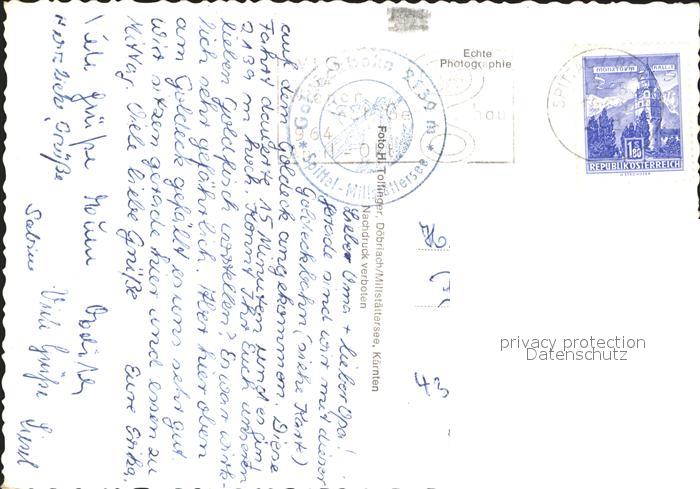 Lieber Oma + lieber Opa!
Gerade sind wir mit dieser
Goldeckbahn (siehe Karte)
auf dem Goldeck angekommen. Diese
Fahrt dauerte 15 Minuten und es ging
2139 m hoch. Könnt Ihr Euch unseren
lieben Goldfisch vorstellen? Es war wirk-
lich sehr gefährlich. Aber hier oben
am Goldeck gefällt es uns sehr gut.
Wir sitzen gerade hier und essen zu
Mittag. Viele liebe Grüße Eure Erika.
Viele Grüße
Herzliche Grüße
Sabine Viele Grüße
Echte
Photographie
Foto H. Tollinger, Döbriach/Millstättersee, Kärnten
Nachdruck verboten
Goldeckbahn 2139 m
* Spittal-Millstättersee *
1964
SPITTAL
1.80
REPUBLIK ÖSTERREICH
privacy protection
Datenschutz